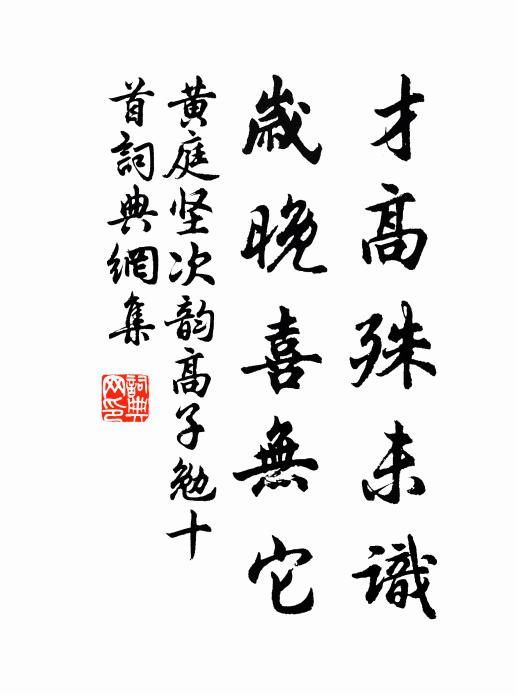 才高殊未識
歲晚喜無它
黄庭坚次韵高子勉十
首詞典網集
詞典
网印